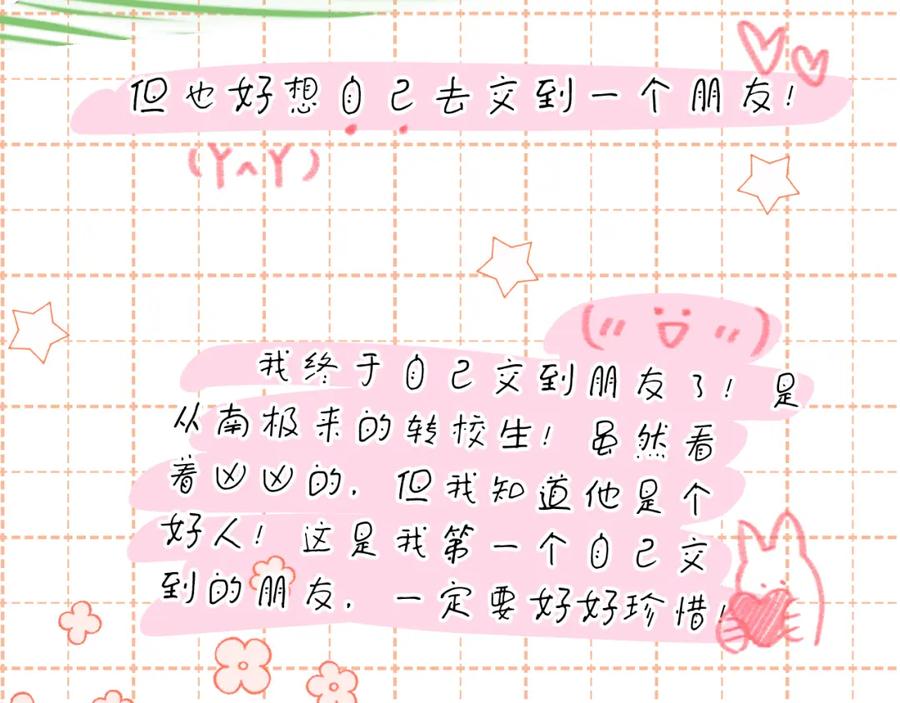 但也好想自己去交到一个朋友!
(Y^Y)
我终于自己交到朋友了!是
从南极来的转校生!虽然看
着凶凶的,但我知道他是个
好人!这是我第一个自己交
到的朋友,一定要好好珍惜!